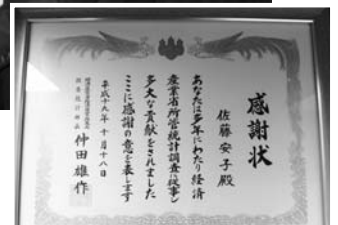 感謝状
佐藤安子殿
あなたは多年にわたり経済
産業省所管統計調査に従事し
多大な貢献をされました
ここに感謝の意を表します
平成十九年十月十八日
仲田雄作